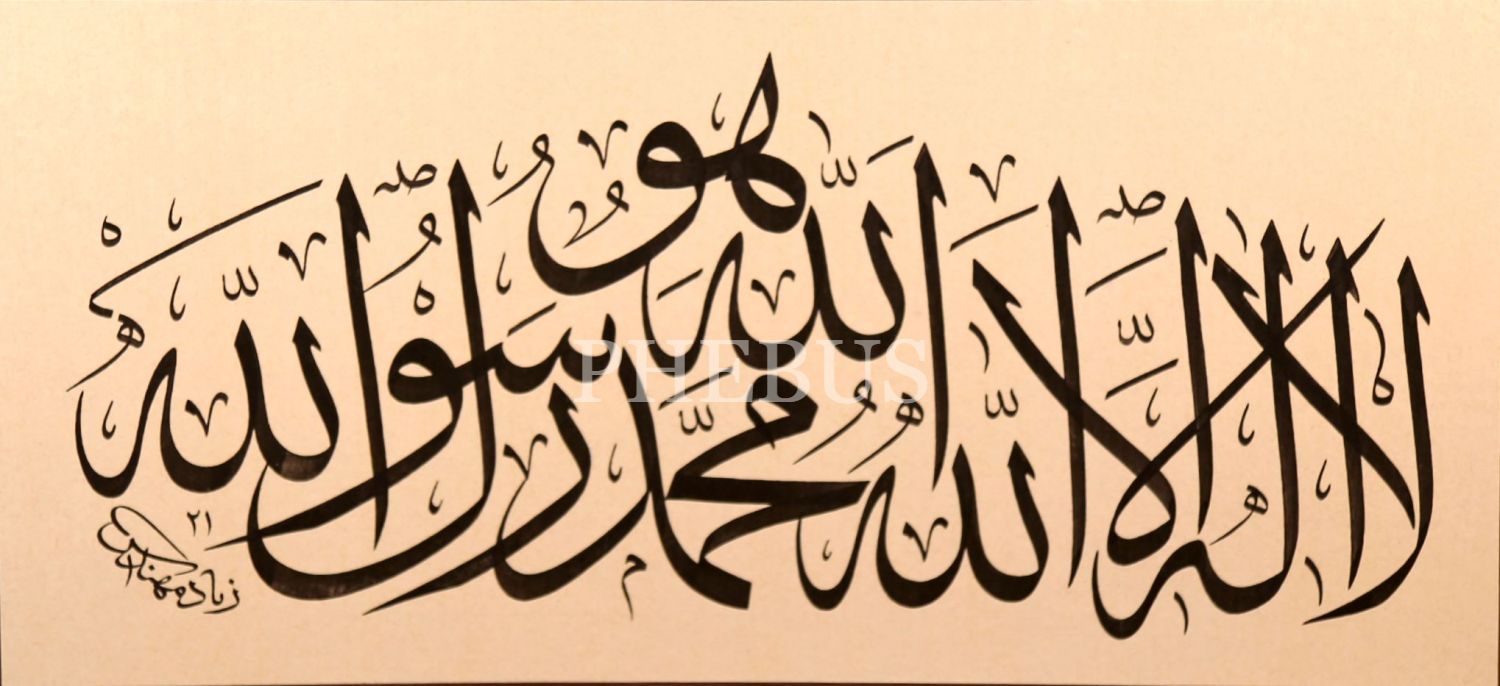 لا اله الا الله هو الله محمد رسول الله
٢١
زياد
PHEBUS